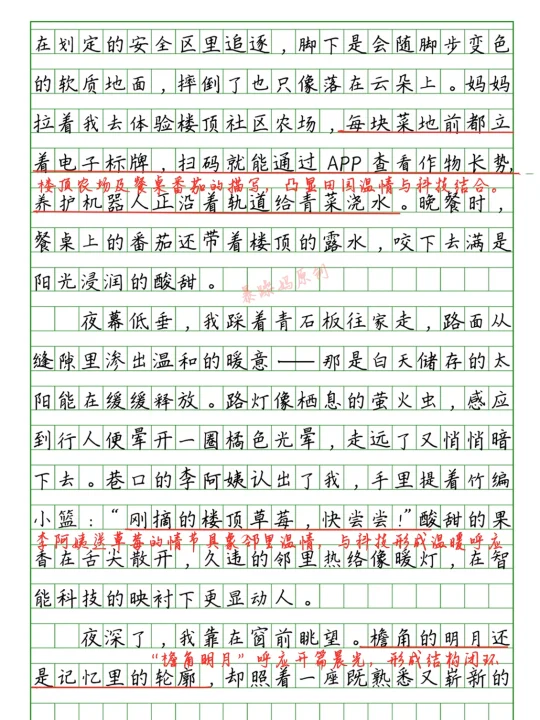 在划定的安全区里追逐，脚下是会随脚步变色
的软质地面，摔倒了也只像落在云朵上。妈妈
拉着我去体验楼顶社区农场，每块菜地前都立
着电子标牌，扫码就能通过 APP 查看作物长势，
楼顶农场及餐桌番茄的描写，凸显田园温情与科技结合。
养护机器人正沿着轨道给青菜浇水。晚餐时，
餐桌上的番茄还带着楼顶的露水，咬下去满是
阳光浸润的酸甜。
暴躁妈原创
夜幕低垂，我踩着青石板往家走，路面从
缝隙里渗出温和的暖意——那是白天储存的太
阳能在缓缓释放。路灯像栖息的萤火虫，感应
到行人便晕开一圈橘色光晕，走远了又悄悄暗
下去。巷口的李阿姨认出了我，手里提着竹编
小篮：“刚摘的楼顶草莓，快尝尝！”酸甜的果
李阿姨送草莓的情节具象邻里温情，与科技形成温暖呼应
香在舌尖散开，久违的邻里热络像暖灯，在智
能科技的映衬下更显动人。
夜深了，我靠在窗前眺望。檐角的明月还
“檐角明月”呼应开篇晨光，形成结构闭环
是记忆里的轮廓，却照着一座既熟悉又崭新的